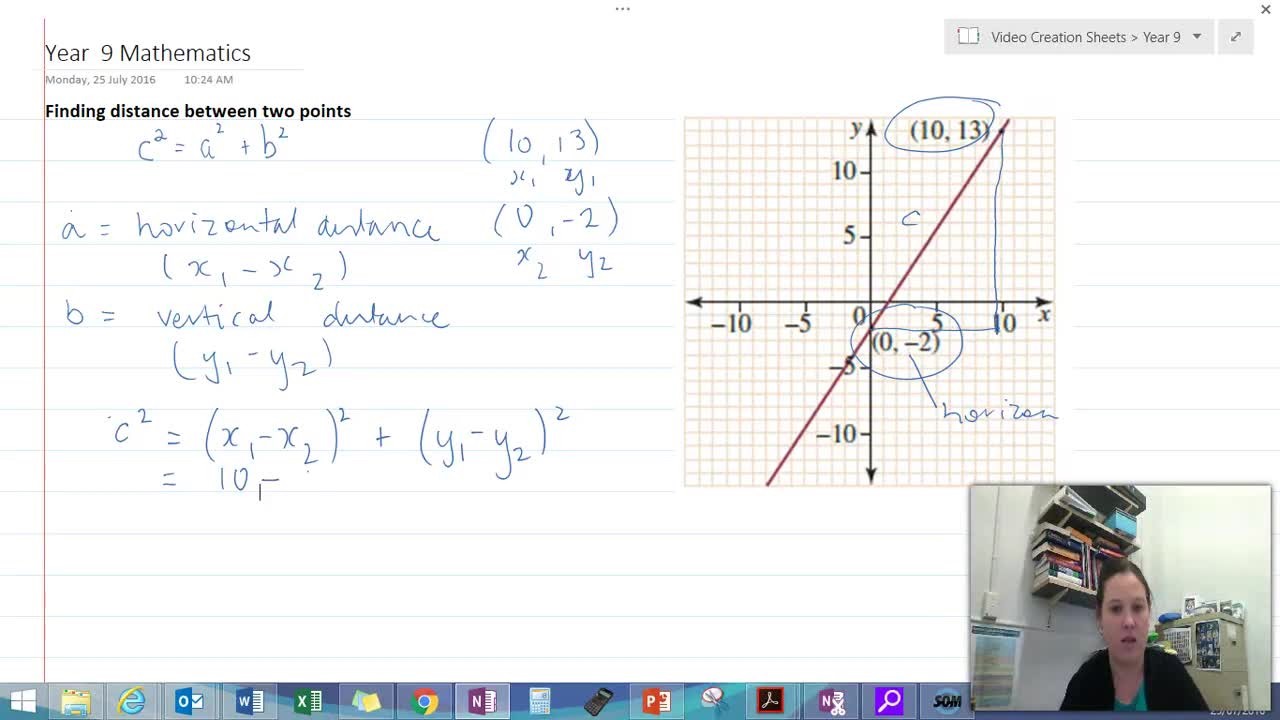 ...
Video Creation Sheets > Year 9
Year 9 Mathematics
Monday, 25 July 2016 10:24 AM
Finding distance between two points
c² = a² + b²
(10, 13)
x₁ y₁
a = horizontal distance
(x₁ – x₂)
(0, -2)
x₂ y₂
b = vertical distance
(y₁ – y₂)
c² = (x₁ – x₂)² + (y₁ – y₂)²
= 10 –
y
(10, 13)
10
c
5
–10 –5 0 5 10 x
(0, –2)
–5
horizon
–10